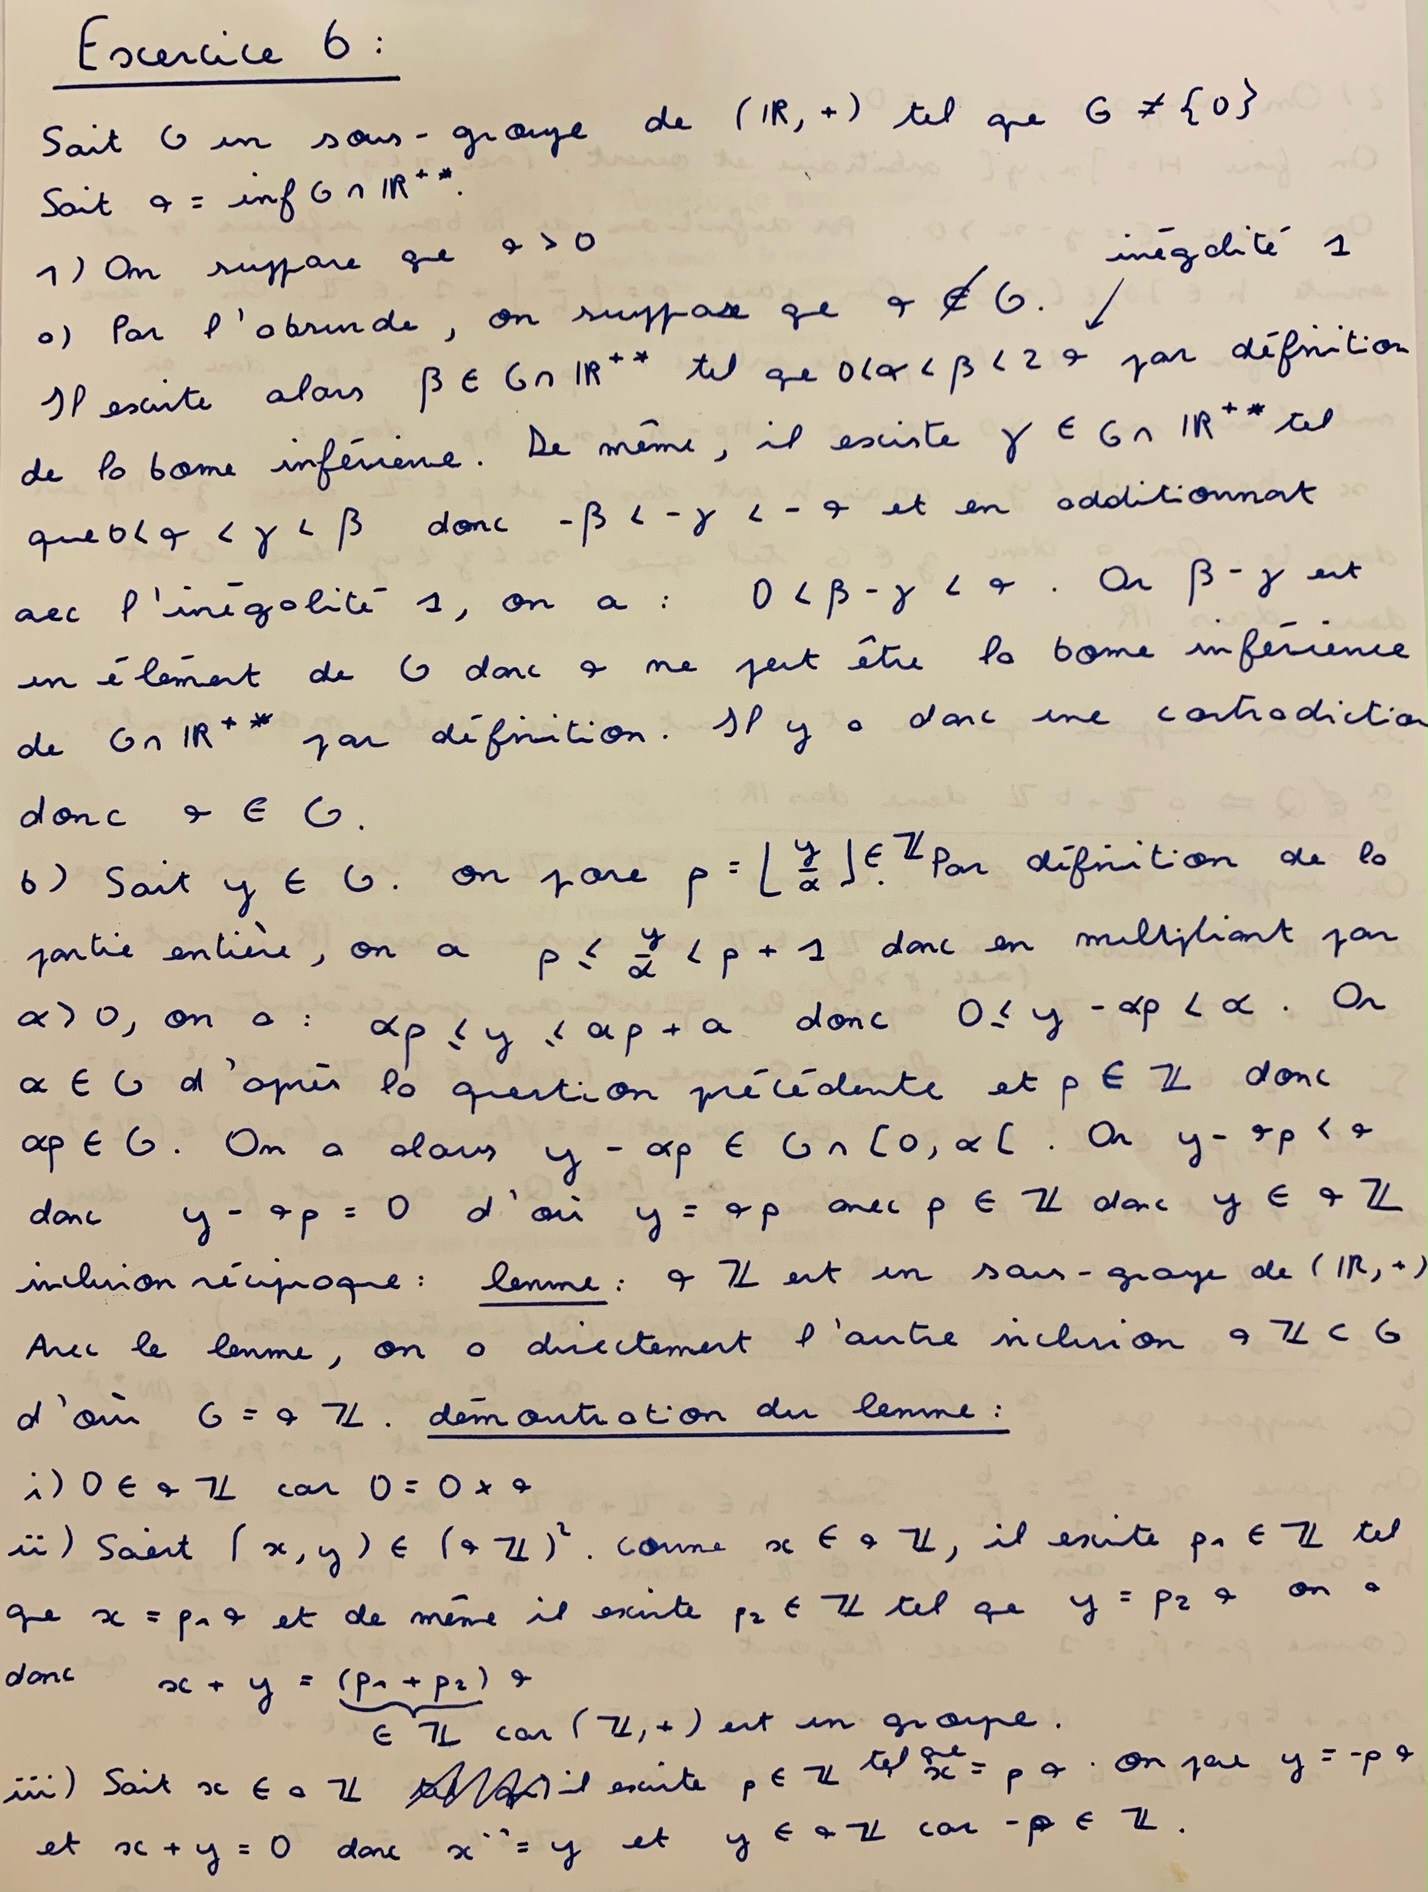 Exercice 6 :
Soit G un sous-groupe de (IR, +) tel que G ≠ {0}
Soit a = inf G ∩ IR⁺*.
1) On suppose que a > 0
inégalité 1
a) Par l'absurde, on suppose que a ∉ G.
Il existe alors β ∈ G ∩ IR⁺* tel que 0<α < β < 2a par définition
de la borne inférieure. De même, il existe γ ∈ G ∩ IR⁺* tel
que 0< a < γ < β donc -β < -γ < -a et en additionnant
avec l'inégalité 1, on a : 0 < β - γ < a. Or β - γ est
un élément de G donc a ne peut être la borne inférieure
de G ∩ IR⁺* par définition. Il y a donc une contradiction
donc a ∈ G.
b) Soit y ∈ G. on pose p = ⌊y/α⌋ ∈ ℤ. Par définition de la
partie entière, on a p ≤ y/α < p + 1 donc en multipliant par
α > 0, on a : αp ≤ y ≤ αp + a donc 0 ≤ y - αp < α. Or
α ∈ G d'après la question précédente et p ∈ ℤ donc
αp ∈ G. On a alors y - αp ∈ G ∩ [0, α[. Or y - ap < a
donc y - ap = 0 d'où y = ap avec p ∈ ℤ donc y ∈ a ℤ
inclusion réciproque : lemme : a ℤ est un sous-groupe de (IR, +)
Avec le lemme, on a directement l'autre inclusion a ℤ ⊂ G
d'où G = a ℤ. démonstration du lemme :
i) 0 ∈ a ℤ car 0 = 0 × a
ii) Soient (x, y) ∈ (a ℤ)². comme x ∈ a ℤ, il existe p₁ ∈ ℤ tel
que x = p₁ a et de même il existe p₂ ∈ ℤ tel que y = p₂ a on a
donc x + y = (p₁ + p₂) a
∈ ℤ car (ℤ, +) est un groupe.
iii) Soit x ∈ a ℤ il existe p ∈ ℤ tel que x = p a. On pose y = -p a
et x + y = 0 donc x⁻¹ = y et y ∈ a ℤ car -p ∈ ℤ.